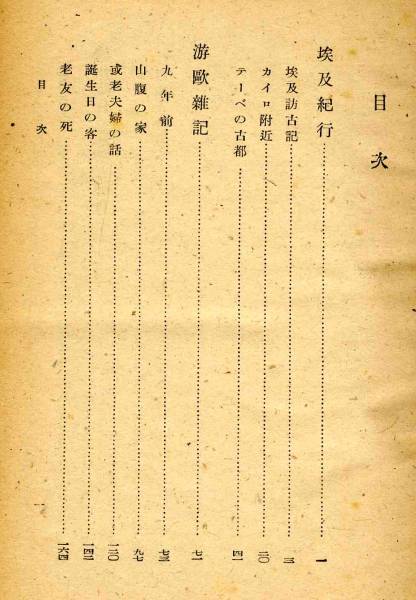 目次
埃及紀行……一
埃及訪古記……三
カイロ附近……二〇
テーベの古都……四一
游歐雜記……七一
九年前……七三
山腹の家……九七
或老夫婦の話……一二〇
誕生日の客……一四二
老友の死……一六四
目次 一